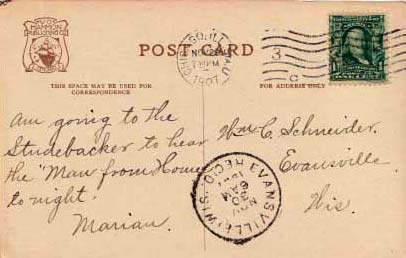 POST CARD
THIS SPACE MAY BE USED FOR
CORRESPONDENCE
FOR ADDRESS ONLY
NOV
1907
3
C
am going to the
Studebacker to hear
the "Man from Home
to night.
Marian.
Wm C. Schneider.
Evansville
Wis.
EVANSVILLE, WIS.
NOV
30
6AM
REC'D.